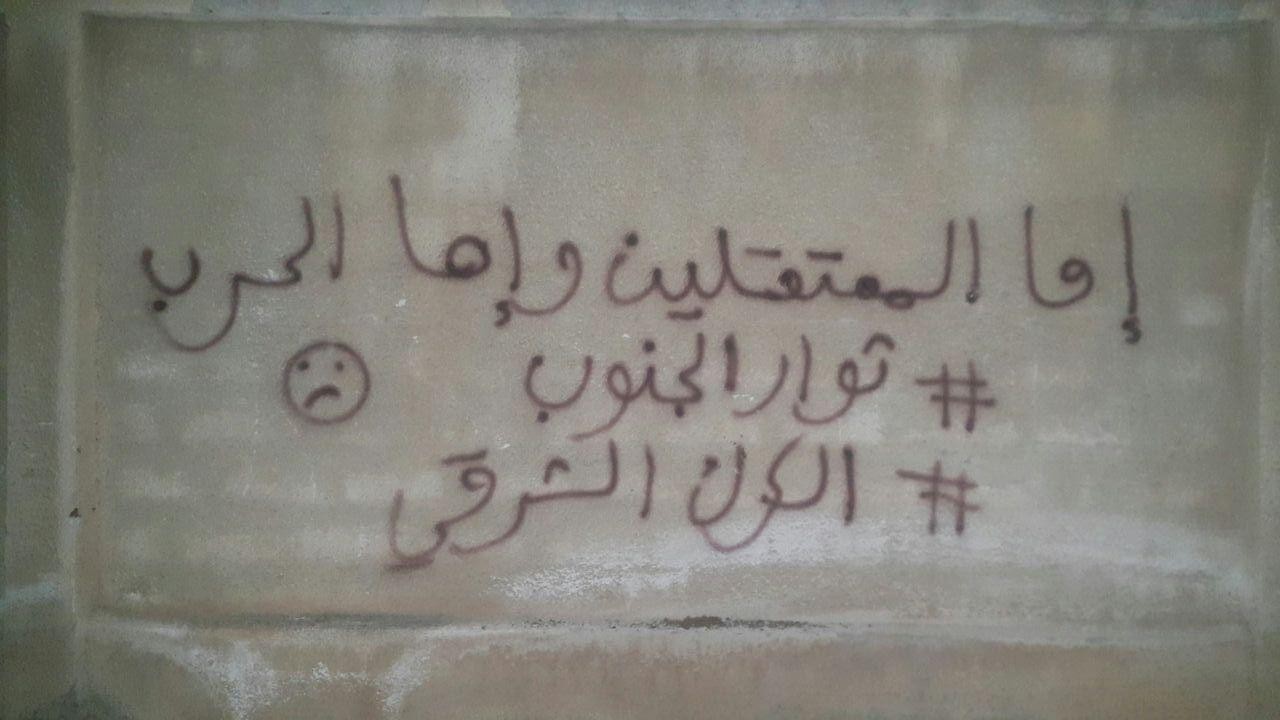 إما المعتقلين وإما الحرب
# ثوار الجنوب
# الكرك الشرقي